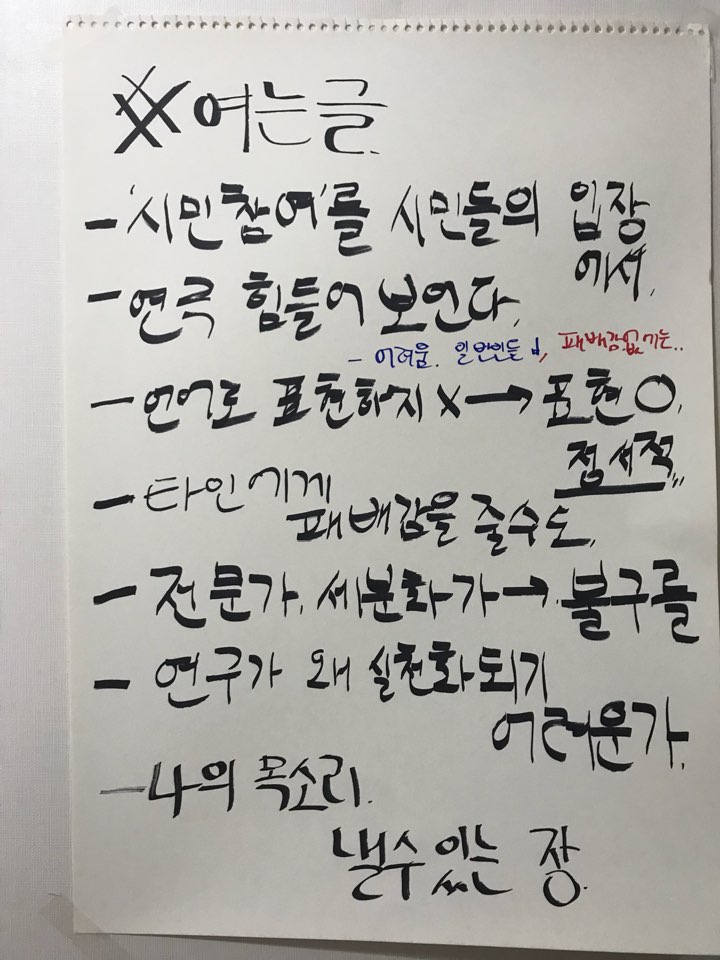 ※ 여는글.
- '시민참여'를 시민들의 입장
에서.
- 연극 힘들어 보인다.
- 어려움. 일반인들, 패배감없기는..
- 언어로 표현하지 X → 표현 O.
접서적
- 타인에게
패배감을 줄수도.
- 전문가. 세분화가 → 불구를
- 연구가 왜 실천화되기
어려운가.
- 나의 목소리.
낼수 있는 장.